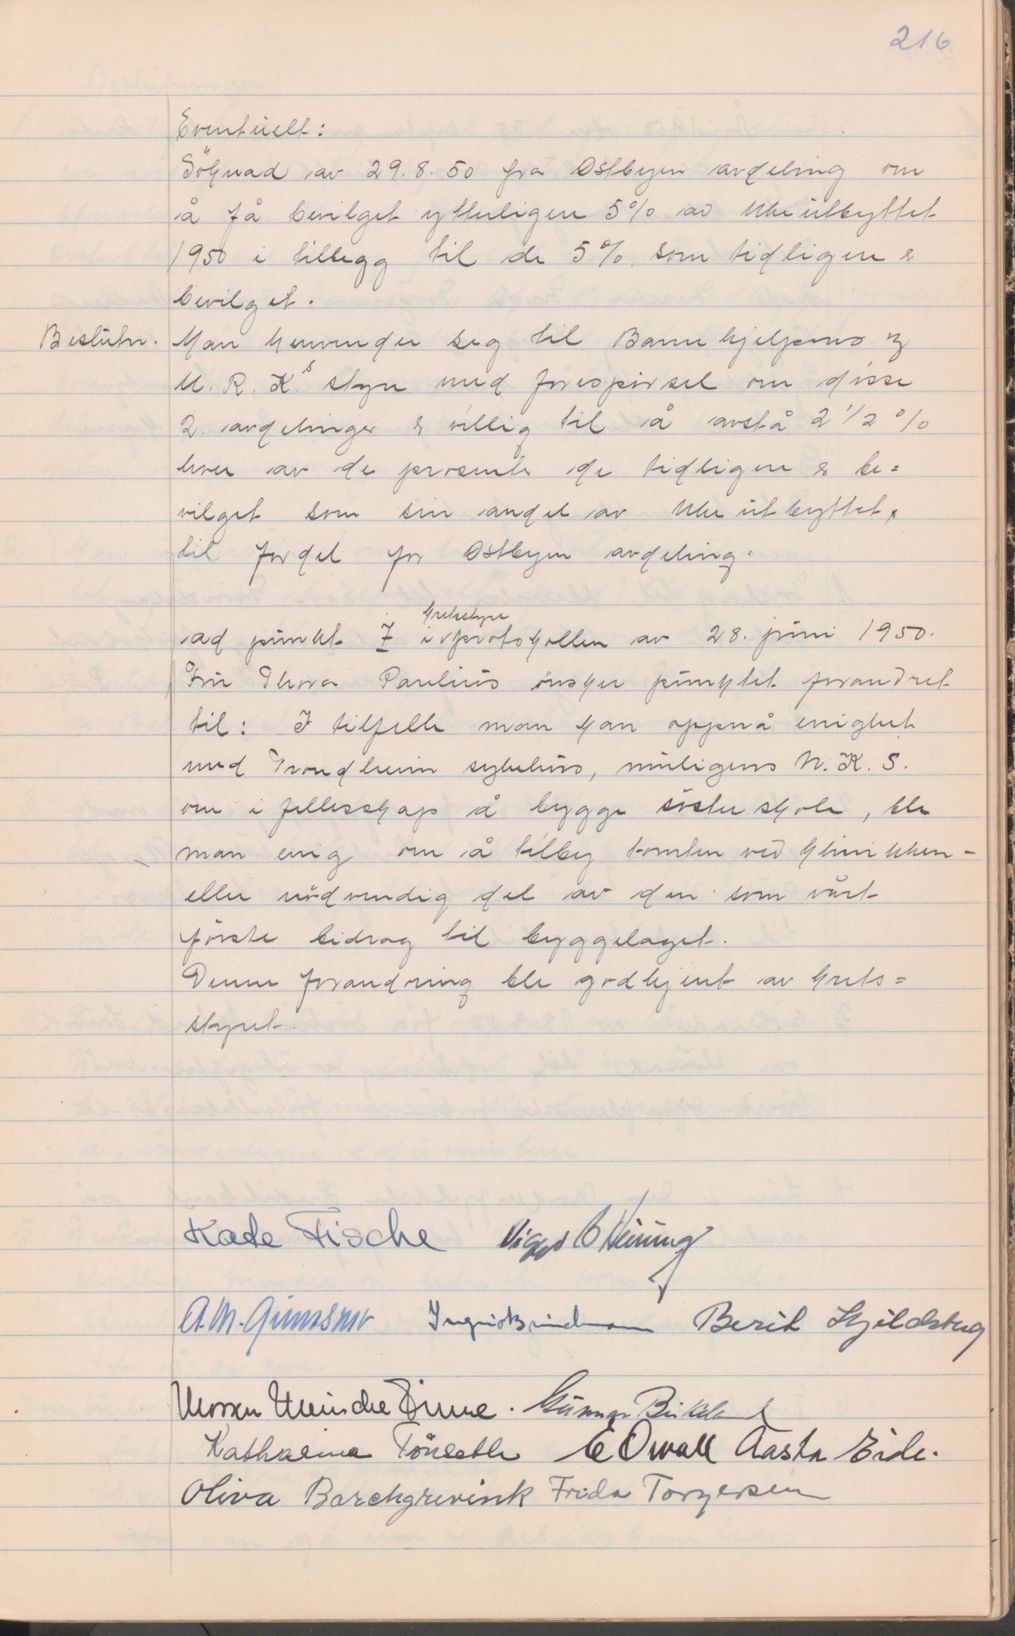 216
Eventuelt:
Söknad av 29.8.50 fra Östbyen avdeling om
å få bevilget ytterligere 5% av Uke utbyttet
1950 i tillegg til de 5% som tidligere er
bevilget.
Beslutn. Man henvender seg til Barnehjelpens og
U.R.K.s styre med forespörsel om disse
2 avdelinger er villig til å avstå 2 1/2 %
hver av de prosenter de tidligere er be=
vilget som sin andel av Uke utbyttet,
til fordel for Östbyen avdeling.
ad punkt 7 i kretsstyreprotokollen av 28. juni 1950.
Fru Thora Paulius önsker punktet forandret
til: I tilfelle man kan oppnå enighet
med Trondheim sykehus, muligens N.K.S.
om i fellesskap å bygge söster skole, ble
man enig om å tilby tomten ved Klinikken -
eller nödvendig del av den som vårt
förste bidrag til byggelaget.
Denne forandring ble godkjent av krets=
styret.
Kate Fische Viggo
A.M. Gimsmo Berit Skjildsberg
Gunnar
Katharina E Owall Aasta Eide.
Oliva Borchgrevink Frida Torgersen